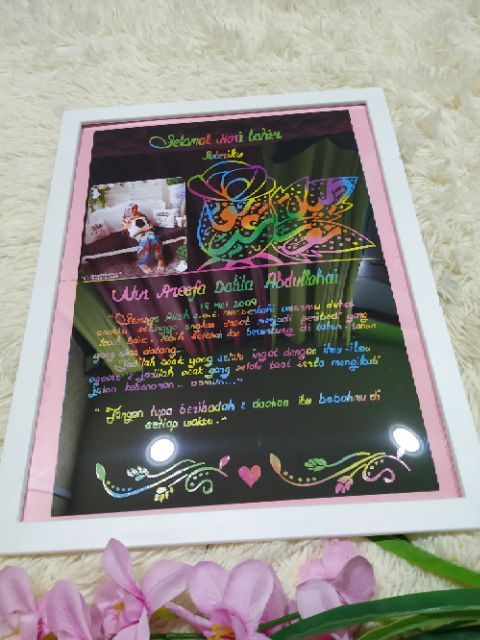 Selamat Hari Lahir
Puteriku
Nur Areefa Dalila Abdullahai
19 Mei 2009
"Semoga Allah s.w.t. memberkati umurmu duhai
anakku sehingga engkau dapat menjadi peribadi yang
baik dari lebih
yang akan datang..
Jadilah anak yang selalu ingat dengan ilmu-ilmu
agama & jadilah anak yang selalu taat serta mengikuti
jalan kebenaran.. aamiin..."
"Jangan lupa beribadah & doakan ibu bapamu di
setiap waktu."